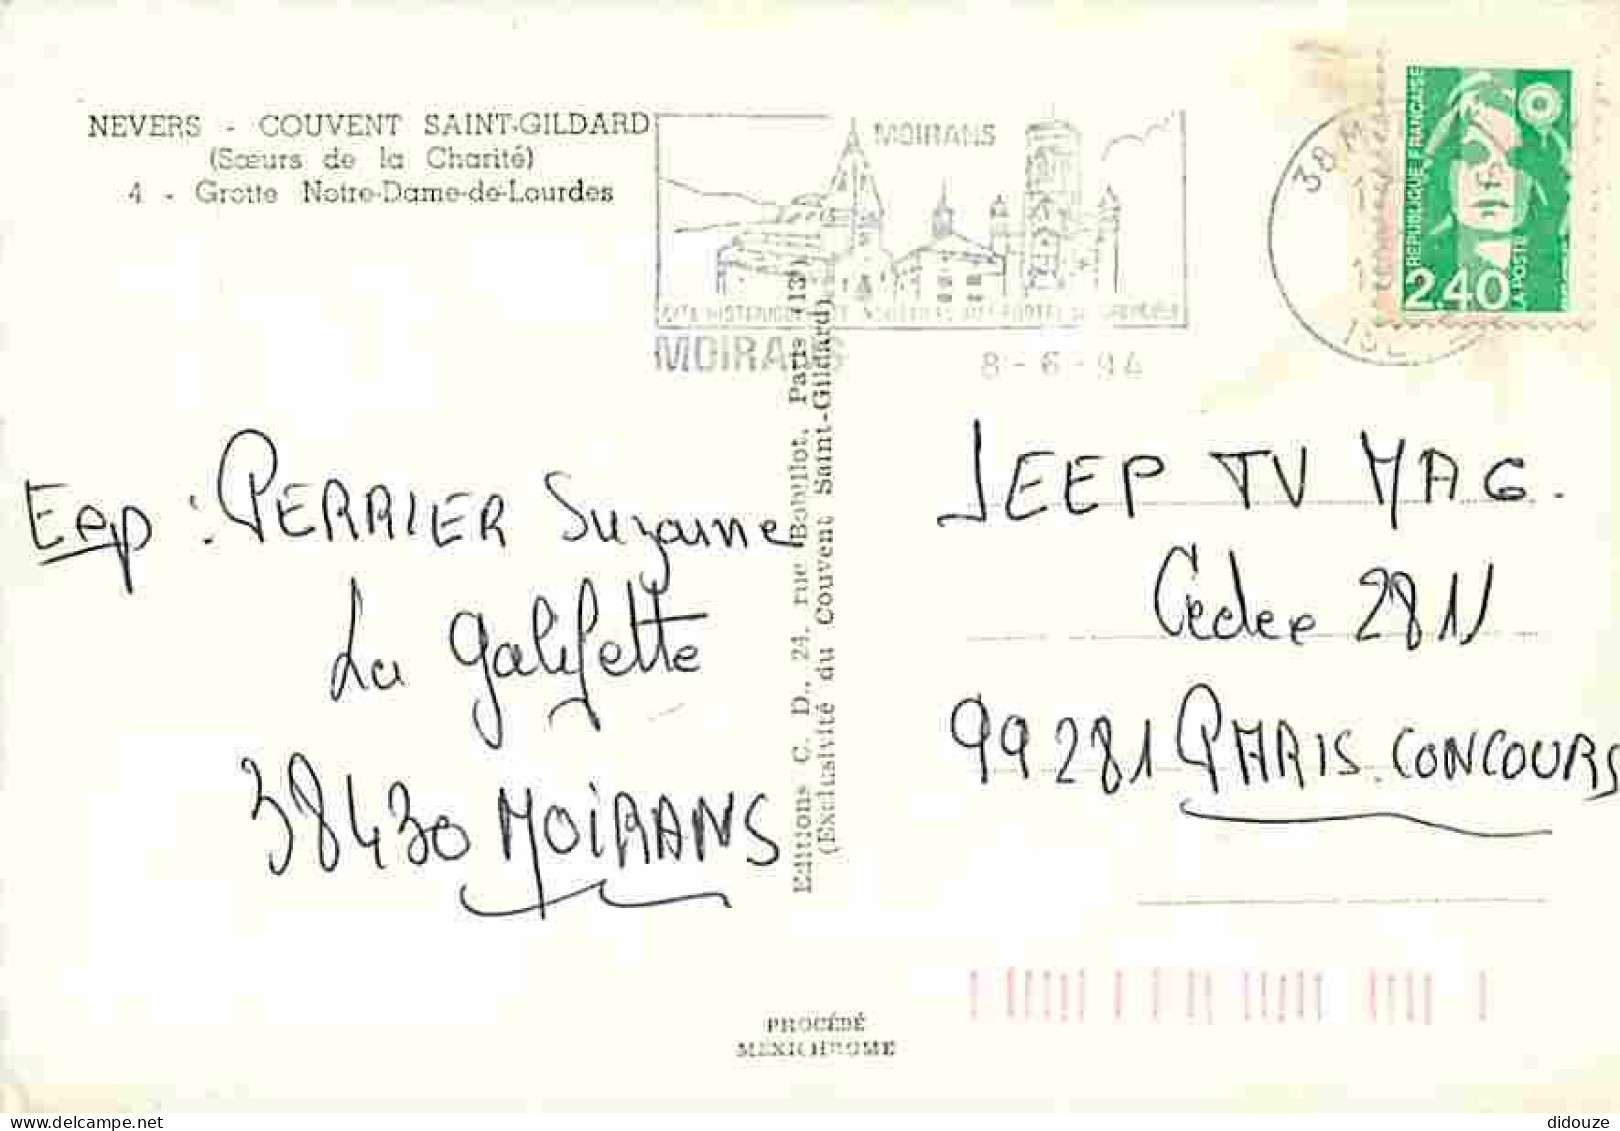 NEVERS - COUVENT SAINT-GILDARD
(Sœurs de la Charité)
4 - Grotte Notre-Dame-de-Lourdes
MOIRANS
MOIRANS
8-6-94
38 M
RÉPUBLIQUE FRANÇAISE
2,40
LA POSTE
Exp : PERRIER Suzanne
La galifette
38430 MOIRANS
Editions C. D., 24, rue Babillot, Paris (13e)
(Exclusivité du Couvent Saint-Gildard)
JEEP TV MAG.
Cedex 2811
99281 PARIS CONCOURS
PROCÉDÉ
MEXICHROME
delcampe.net
didouze